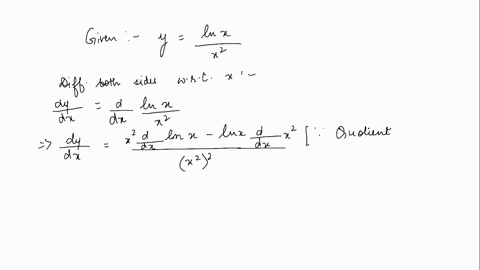 Given :- y = ln x / x²
Diff. both sides w.r.t. x :-
dy/dx = d/dx ln x / x²
=> dy/dx = x² d/dx ln x - ln x d/dx x² / (x²)² [∵ Quotient